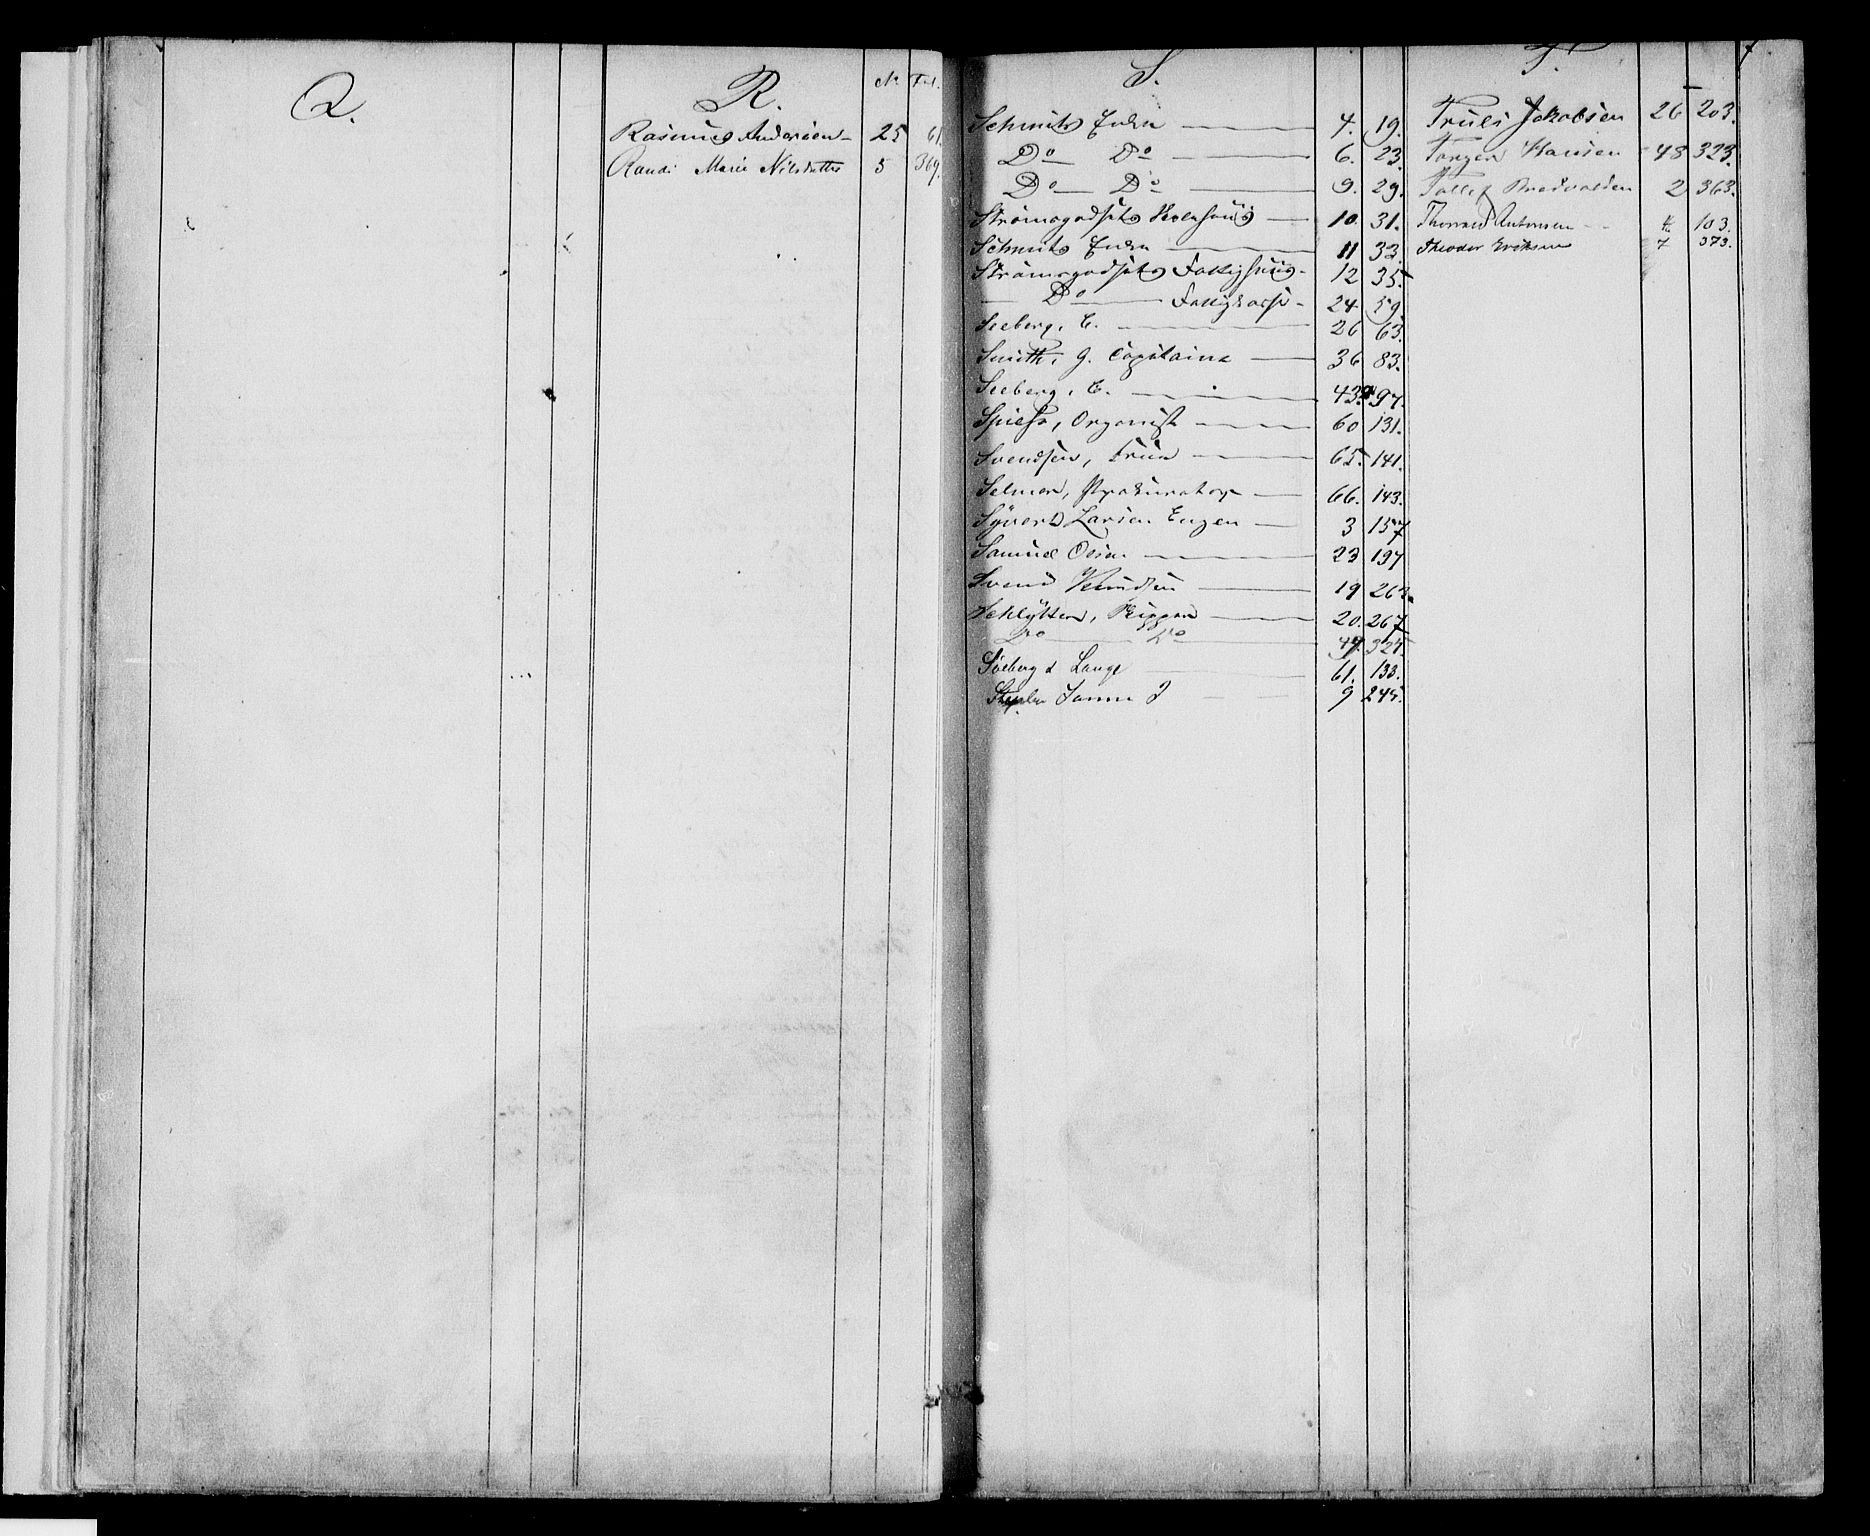 Q.
R.
No Fol.
Rasmus Andersen 25 61.
Randi Marie Nilsdatter 5 369.
S.
Schmits Enke 4. 19.
Do Do 6. 23.
Do Do 9. 29.
Strømsgodsets 10. 31.
Schmits Enke 11 33.
Strømsgodsets Fattighuus 12 35.
Do Fattigkasse 24 59.
Seeberg, C. 26 63.
Smith, G. Capitaine 36 83.
Seeberg, C. 43 97.
Spiess, Organist 60 131.
Svendsen, Frue 65. 141.
Selmer, Prokurator 66. 143.
Syvert Larsen Engen 3 157
Samuel Olsen 23 197
Svend Knudsen 19 263.
Schlytter, 20. 267
Do Do 49. 325.
Søeberg & Lange 61. 133.
Janne J 9 245.
T.
7
Truls Jakobsen 26 203.
Torger Hansen 48 323.
Tollef Bredvolden 2 363.
Thorvald Antonsen 103.
Theodor Eriksen 7 373.